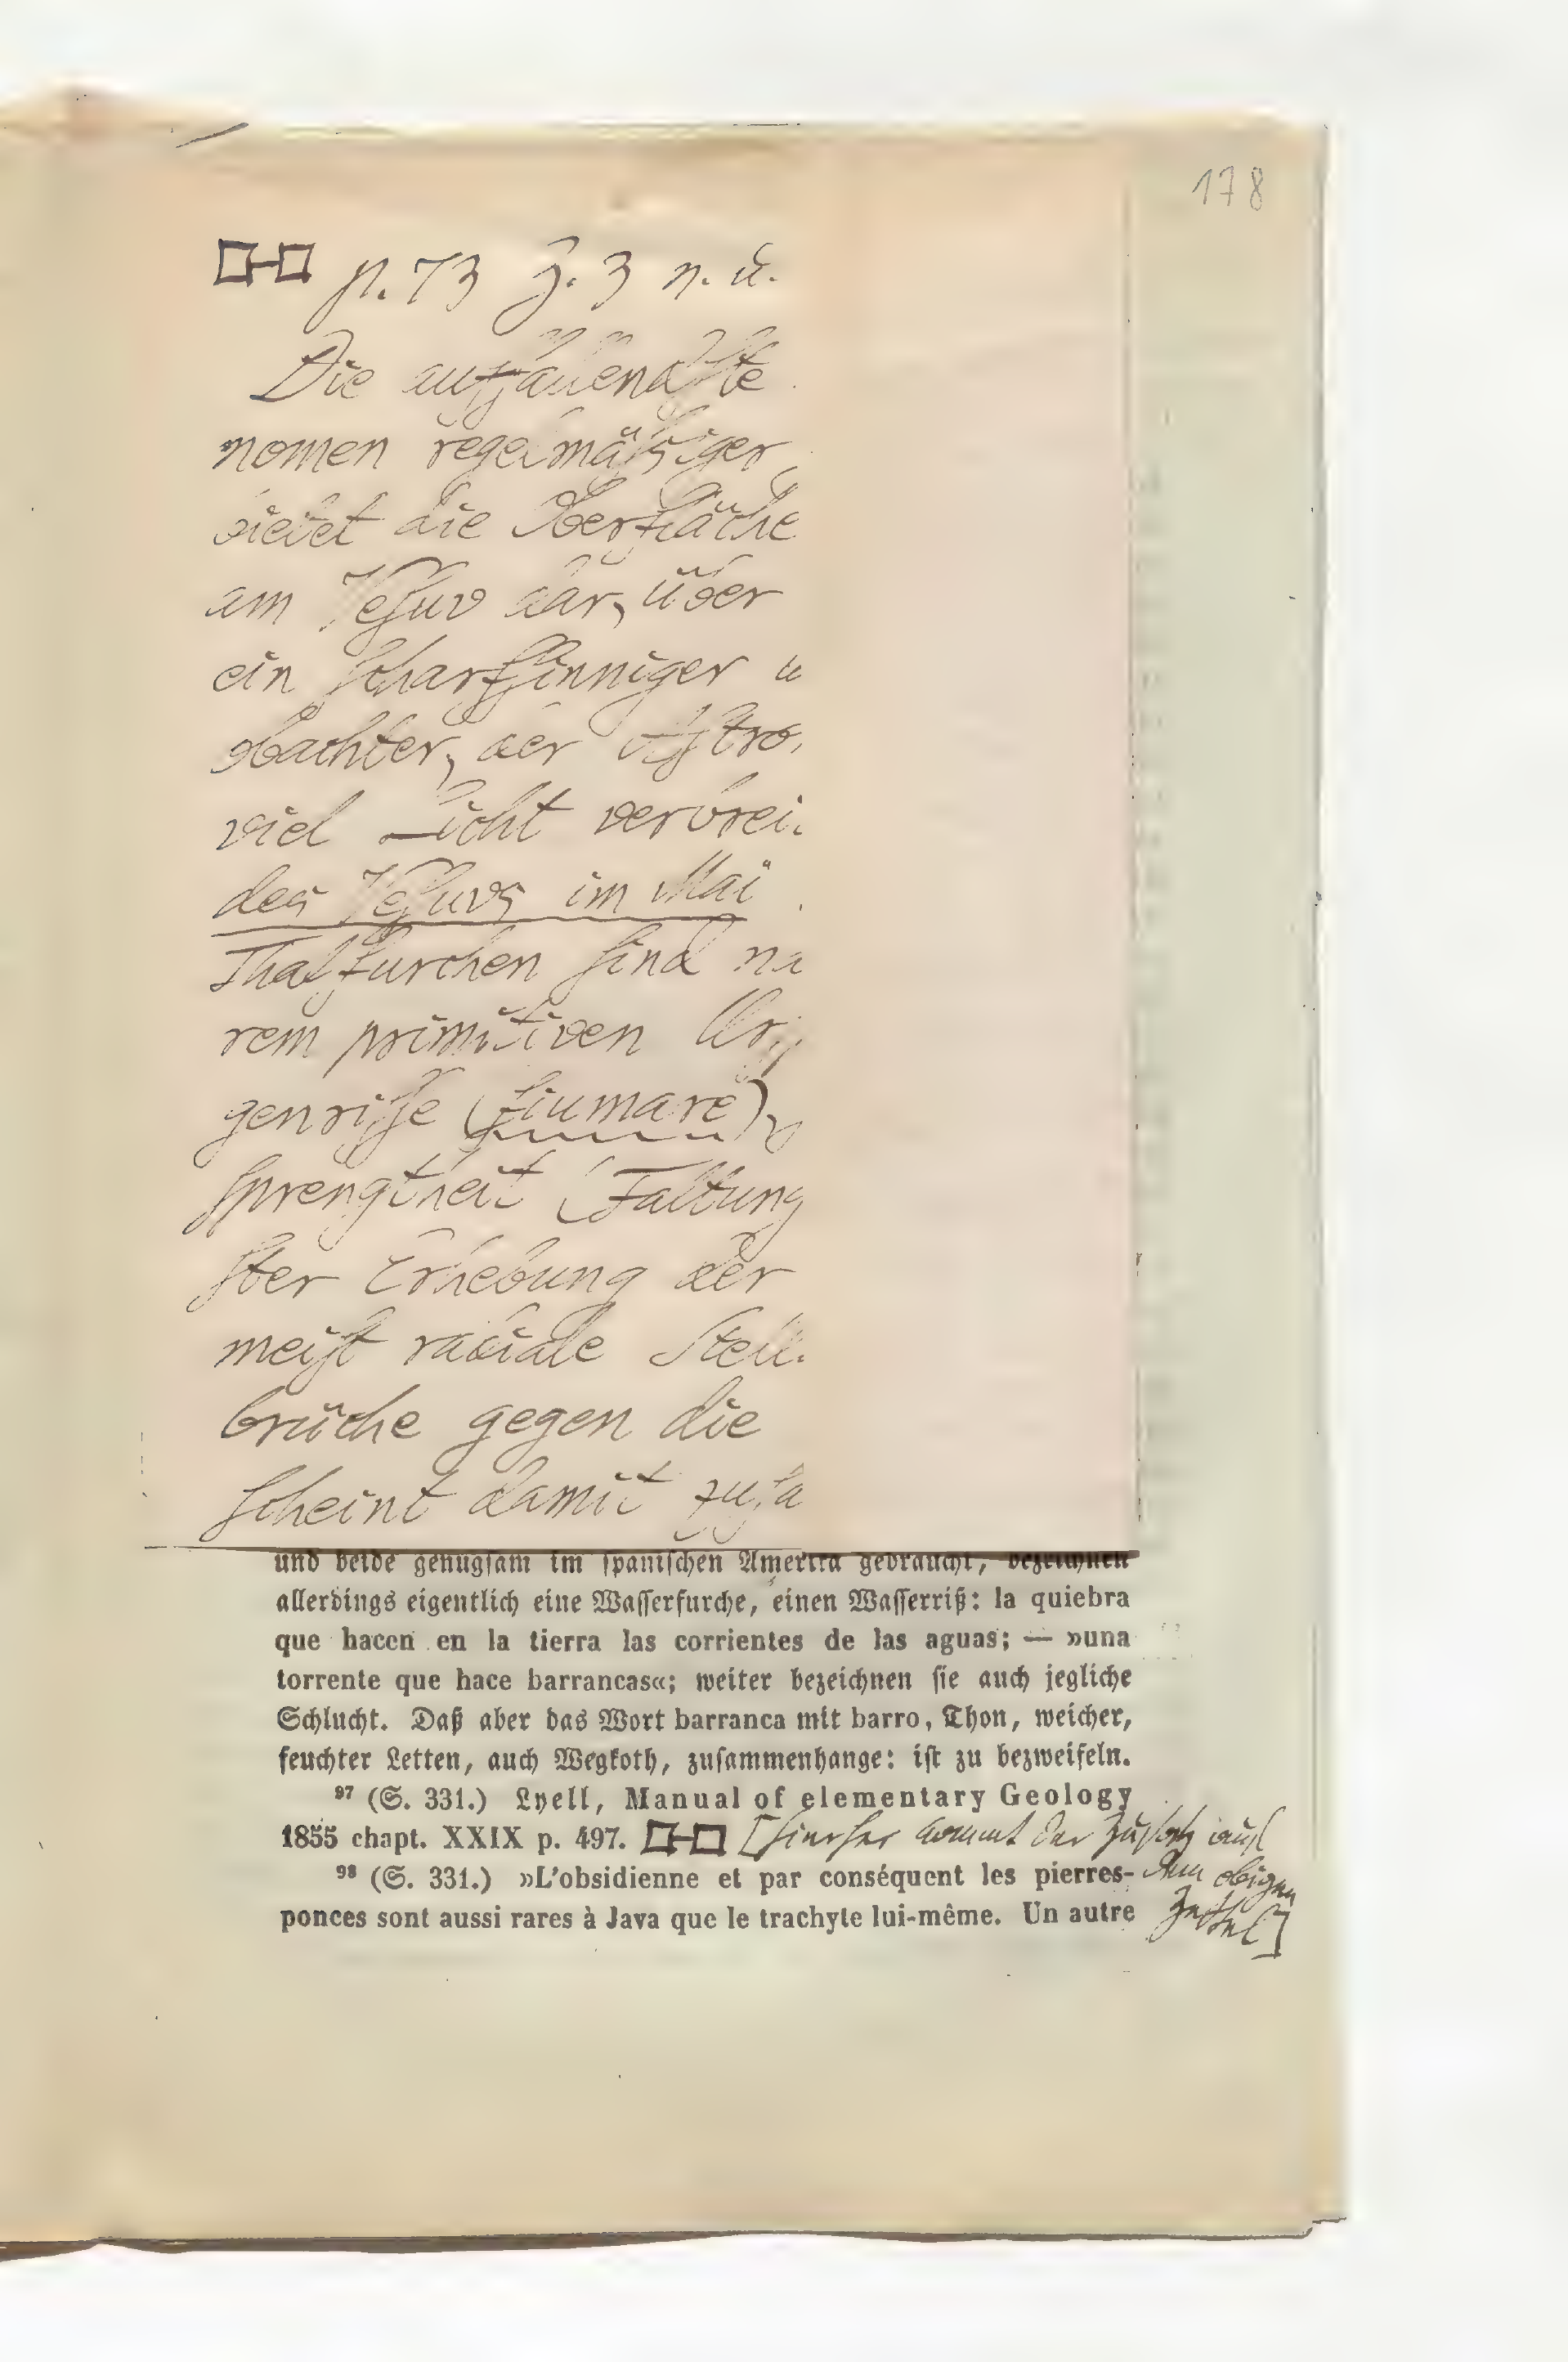 178
p. 73 Z. 3 v. u.
Die auffallendſte
nomen regelmäßiger
bietet die Oberfläche
am Veſuv dar, über
ein ſcharfſinniger u
obachter, der Aſtro
viel Licht verbrei
des Veſuvs im Mai
Thalfurchen ſind na
rem primitiven Urſ
genriſſe (fiumare),
ſprengtheit (Faltung
ſter Erhebung der
meiſt radiale Stell
brüche gegen die
ſcheint damit zuſa
und beide genugſam im ſpaniſchen Amerika gebraucht, bezeichnen
allerdings eigentlich eine Waſſerfurche, einen Waſſerriß: la quiebra
que hacen en la tierra las corrientes de las aguas; — »una
torrente que hace barrancas«; weiter bezeichnen ſie auch jegliche
Schlucht. Daß aber das Wort barranca mit barro, Thon, weicher,
feuchter Letten, auch Wegkoth, zuſammenhange: iſt zu bezweifeln.
⁹⁷ (S. 331.) Lyell, Manual of elementary Geology
1855 chapt. XXIX p. 497. [hierher kommt der Zuſatz auf
dem obigen
Zettel]
⁹⁸ (S. 331.) »L'obsidienne et par conséquent les pierres-
ponces sont aussi rares à Java que le trachyte lui-même. Un autre